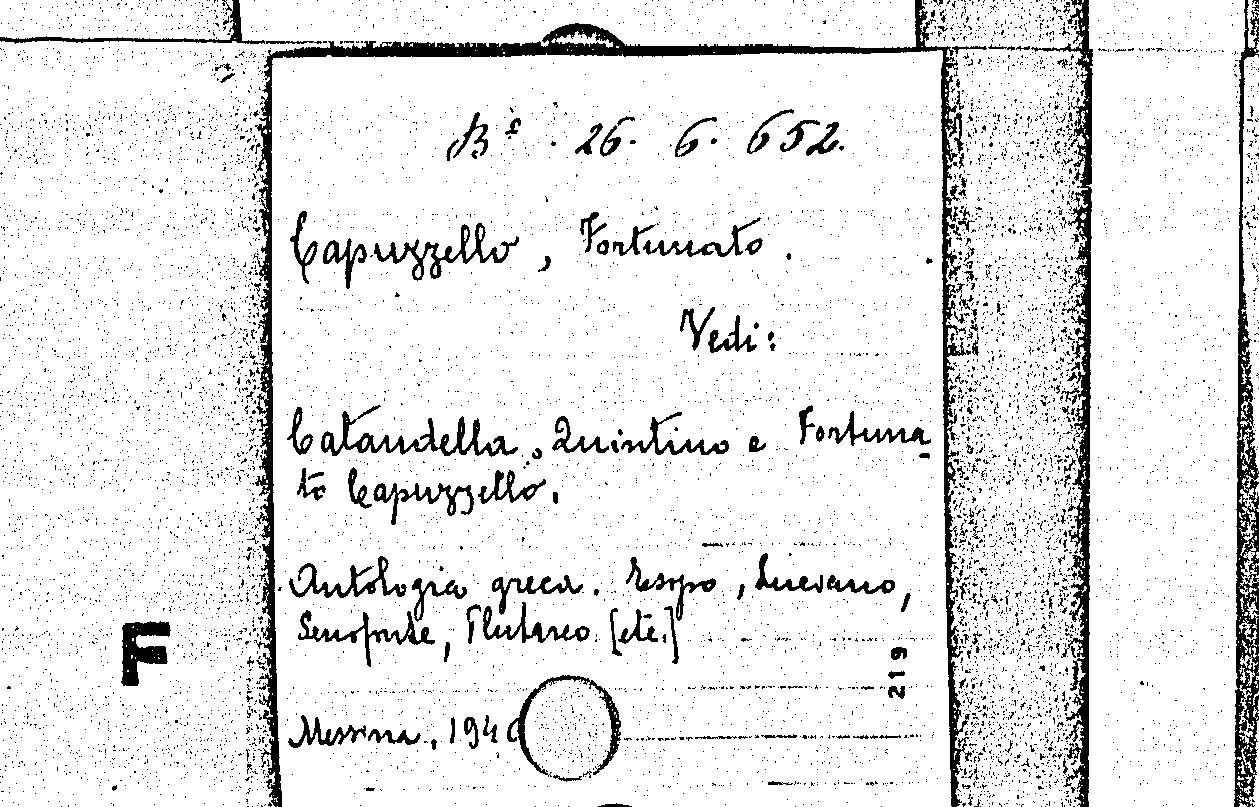 Bˢ. 26. 6. 652.
Capuzzello, Fortunato.
Vedi:
Cataudella, Quintino e Fortuna-
to Capuzzello.
Antologia greca. Esopo, Luciano,
Senofonte, Plutarco [etc.]
F
219
Messina, 1940